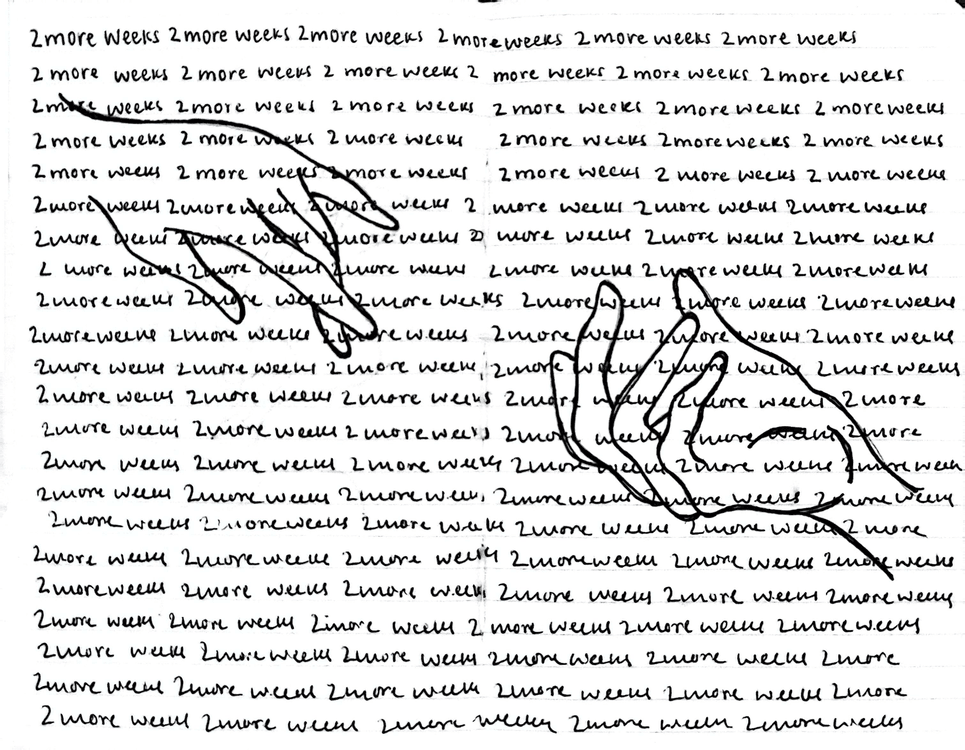 2 more weeks 2 more weeks 2 more weeks 2 more weeks 2 more weeks 2 more weeks
2 more weeks 2 more weeks 2 more weeks 2 more weeks 2 more weeks 2 more weeks
2 more weeks 2 more weeks 2 more weeks 2 more weeks 2 more weeks 2 more weeks
2 more weeks 2 more weeks 2 more weeks 2 more weeks 2 more weeks 2 more weeks
2 more weeks 2 more weeks 2 more weeks 2 more weeks 2 more weeks 2 more weeks
2 more weeks 2 more weeks 2 more weeks 2 more weeks 2 more weeks 2 more weeks
2 more weeks 2 more weeks 2 more weeks 2 more weeks 2 more weeks 2 more weeks
2 more weeks 2 more weeks 2 more weeks 2 more weeks 2 more weeks 2 more weeks
2 more weeks 2 more weeks 2 more weeks 2 more weeks 2 more weeks 2 more weeks
2 more weeks 2 more weeks 2 more weeks 2 more weeks 2 more weeks 2 more weeks
2 more weeks 2 more weeks 2 more weeks 2 more weeks 2 more weeks 2 more weeks
2 more weeks 2 more weeks 2 more weeks 2 more weeks 2 more weeks 2 more
2 more weeks 2 more weeks 2 more weeks 2 more weeks 2 more weeks 2 more
2 more weeks 2 more weeks 2 more weeks 2 more weeks 2 more weeks 2 more weeks
2 more weeks 2 more weeks 2 more weeks 2 more weeks 2 more weeks 2 more weeks
2 more weeks 2 more weeks 2 more weeks 2 more weeks 2 more weeks 2 more
2 more weeks 2 more weeks 2 more weeks 2 more weeks 2 more weeks 2 more weeks
2 more weeks 2 more weeks 2 more weeks 2 more weeks 2 more weeks 2 more weeks
2 more weeks 2 more weeks 2 more weeks 2 more weeks 2 more weeks 2 more weeks
2 more weeks 2 more weeks 2 more weeks 2 more weeks 2 more weeks 2 more
2 more weeks 2 more weeks 2 more weeks 2 more weeks 2 more weeks 2 more
2 more weeks 2 more weeks 2 more weeks 2 more weeks 2 more weeks